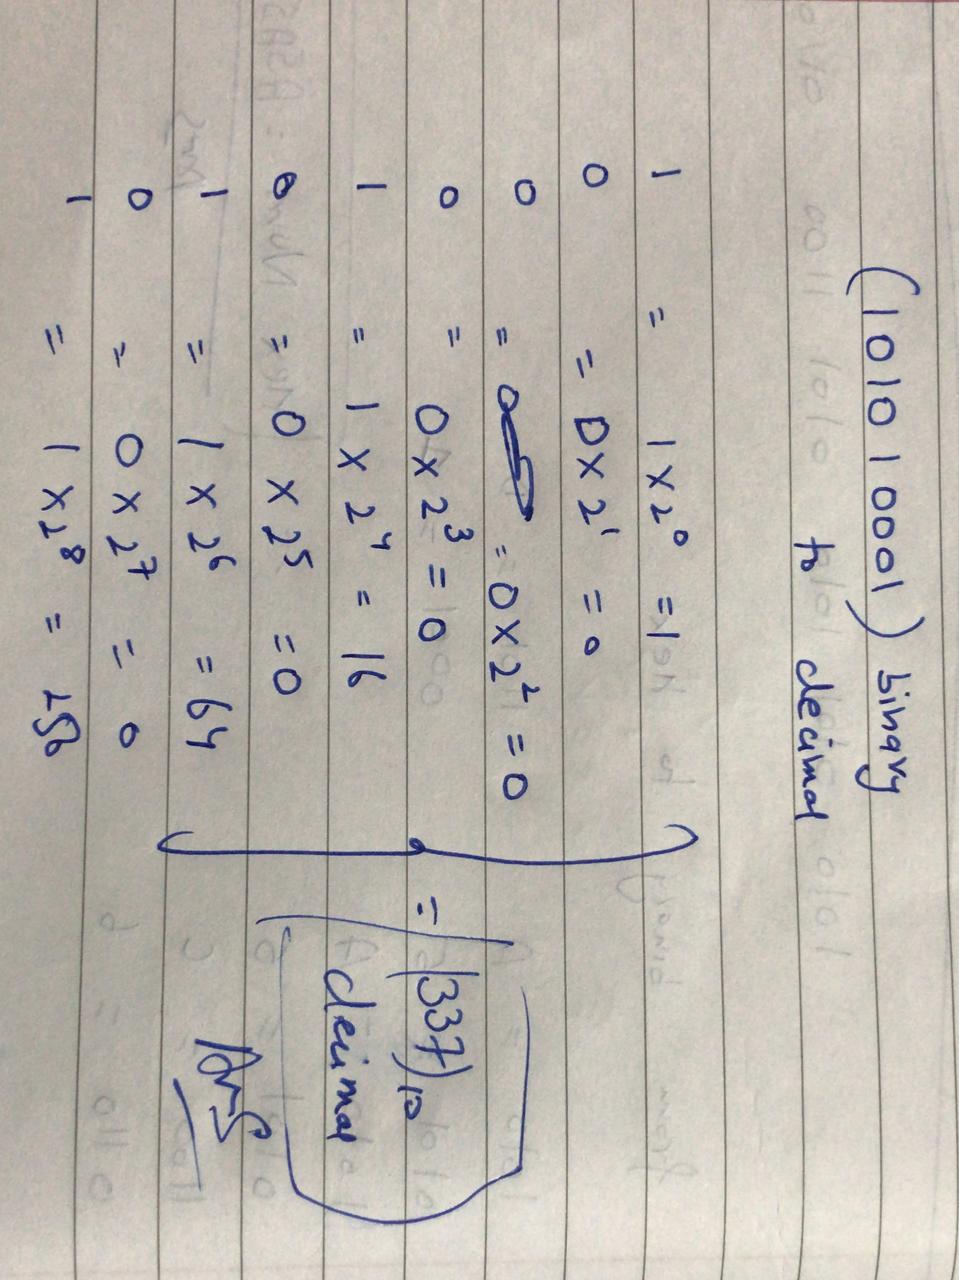 (101010001) binary
to decimal
1 = 1 x 2⁰ = 1
0 = 0 x 2¹ = 0
0 = = 0 x 2² = 0
0 = 0 x 2³ = 0
1 = 1 x 2⁴ = 16
0 = 0 x 2⁵ = 0
1 = 1 x 2⁶ = 64
0 = 0 x 2⁷ = 0
1 = 1 x 2⁸ = 256
= (337)₁₀
decimal
Ans